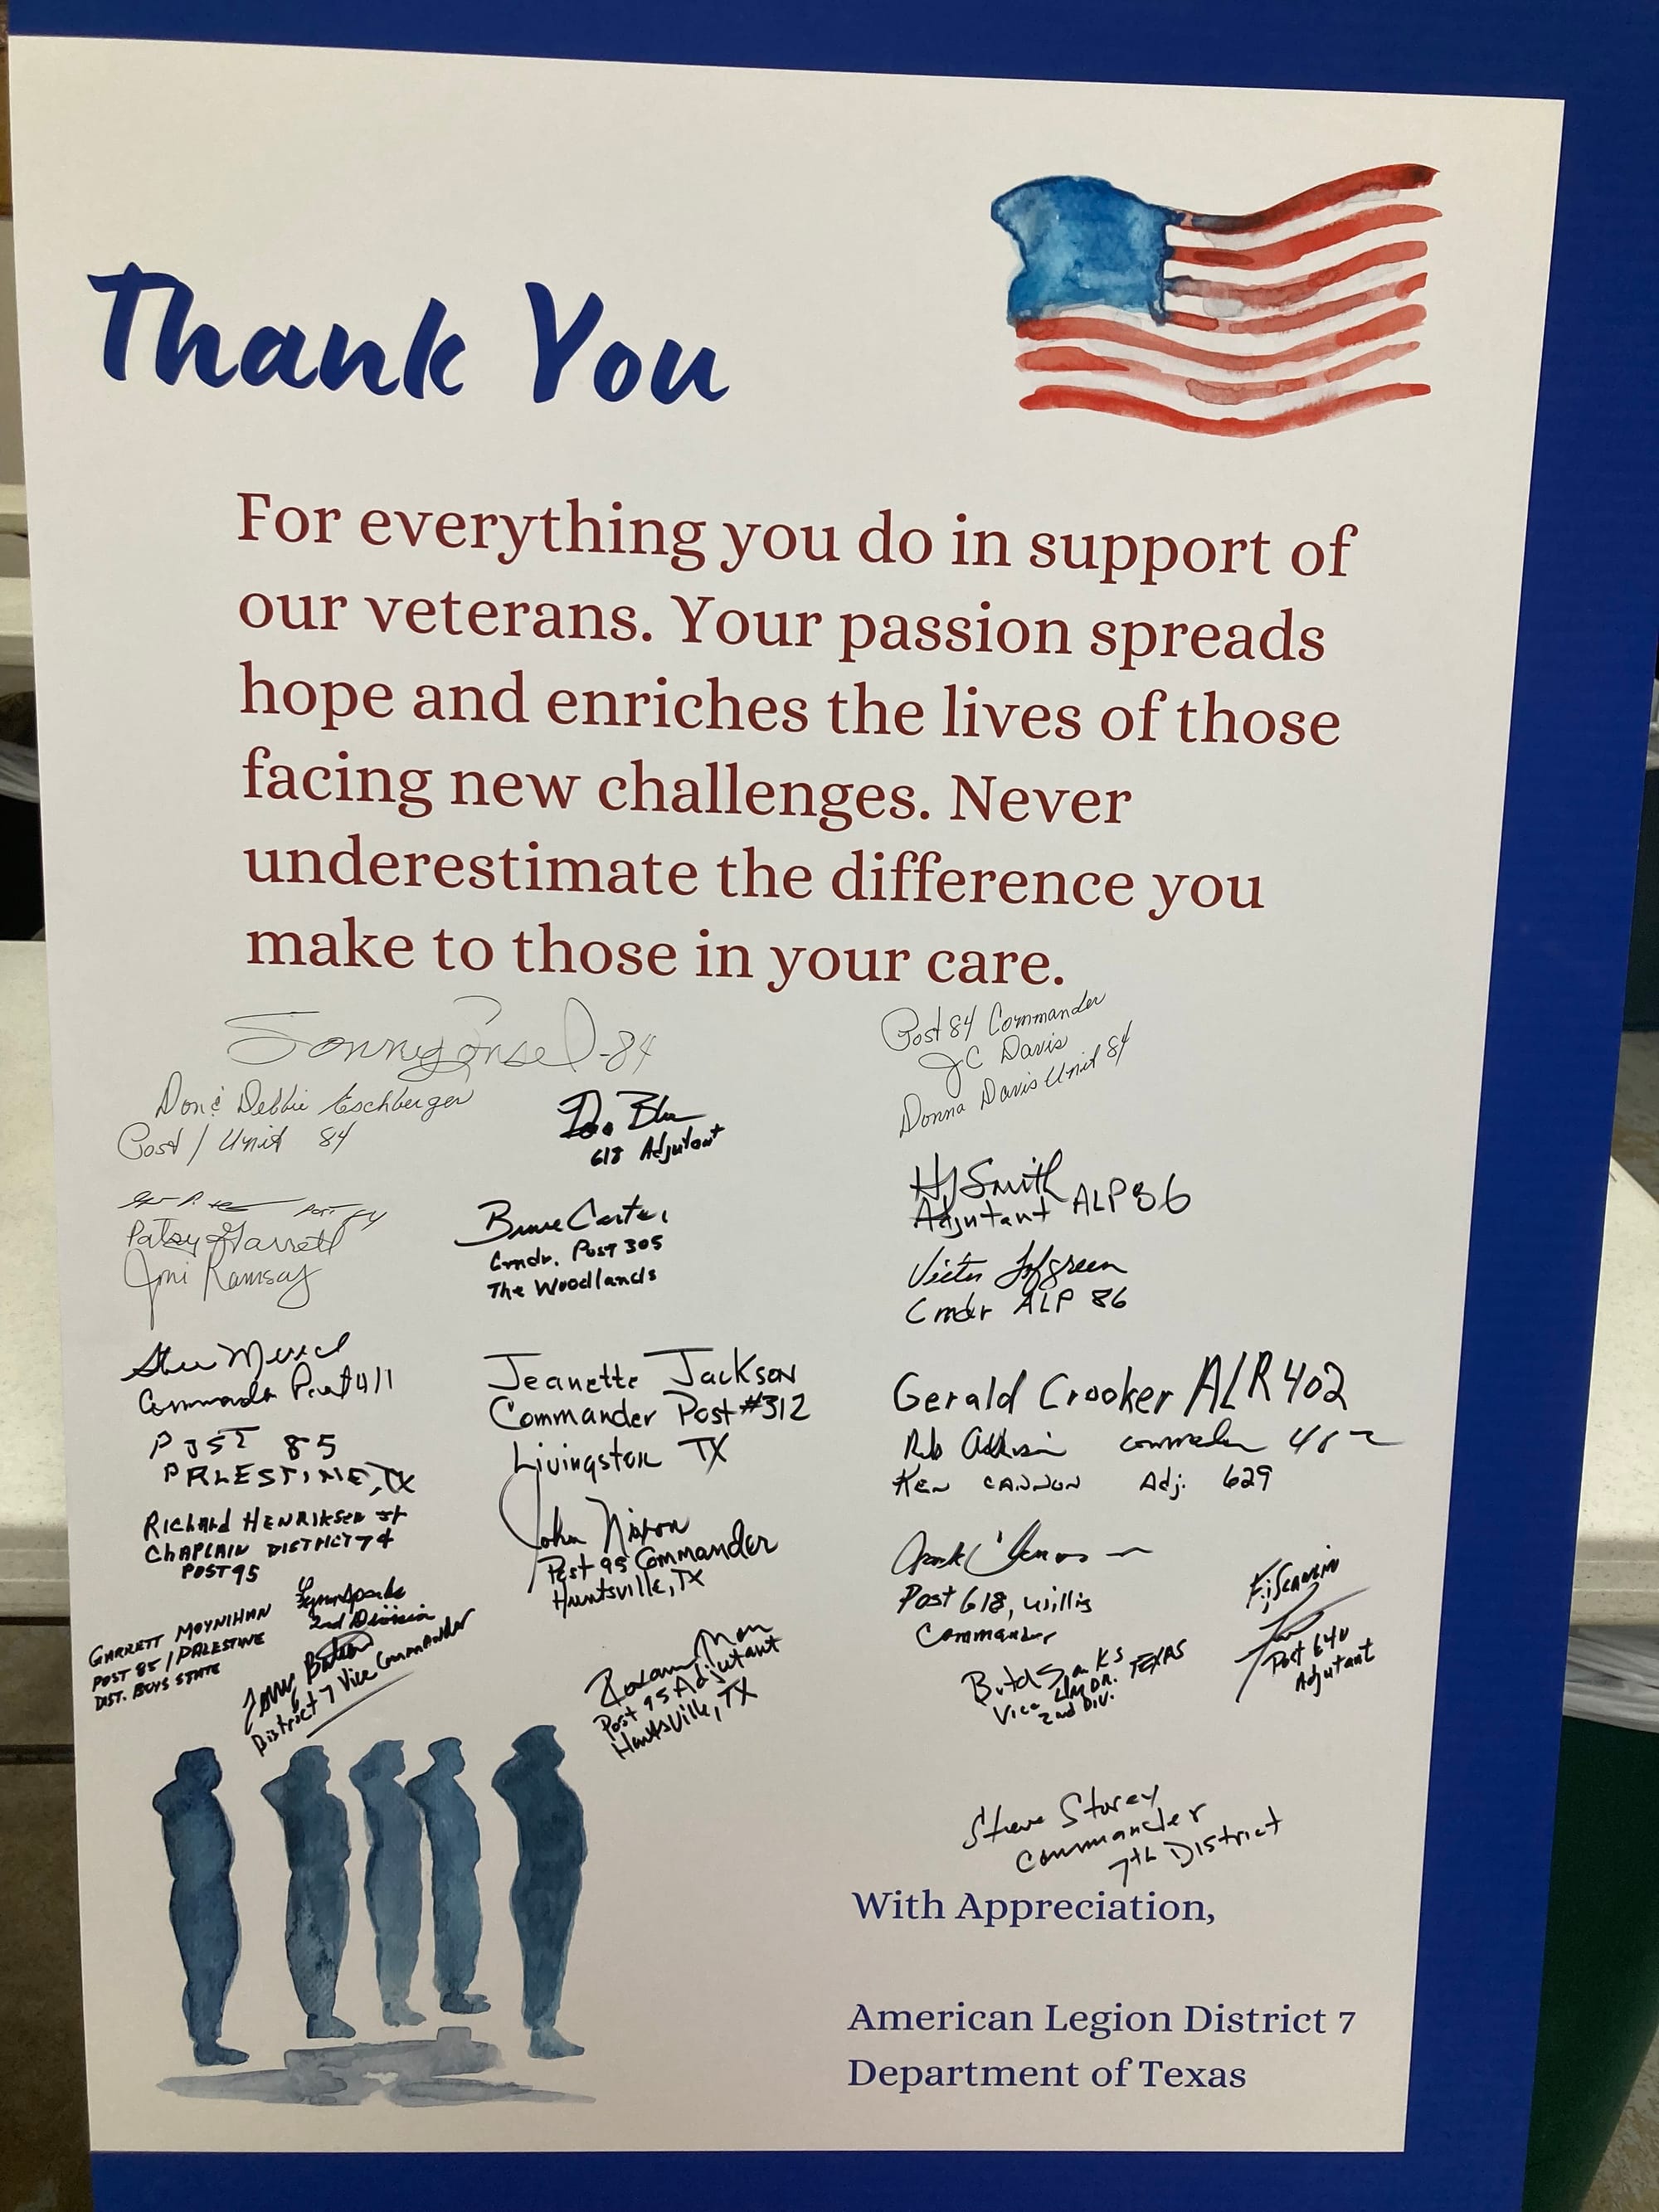 Thank You
For everything you do in support of
our veterans. Your passion spreads
hope and enriches the lives of those
facing new challenges. Never
underestimate the difference you
make to those in your care.
-84
Post 84 Commander
JC Davis
Donna Davis Unit 84
Don & Debbie Eschberger
Post / Unit 84
618 Adjutant
HJ Smith
Adjutant ALP 86
Post 84
Patsy Garrett
Joni Ramsay
Bruce Carter
Cmdr. Post 305
The Woodlands
Victor Lofgreen
Cmdr ALP 86
Commander Post 411
Jeanette Jackson
Commander Post #312
Livingston TX
Gerald Crooker ALR 402
Commander
Ken CANNON Adj. 629
POST 85
PALESTINE, TX
Richard HENRIKSEN
CHAPLAIN DISTRICT 7
POST 95
John Nixon
Post 95 Commander
Huntsville, TX
Post 618, Willis
Commander
Post 640
Adjutant
GARRETT MOYNIHAN
POST 85 / PALESTINE
DIST. BOYS STATE
2nd Division
District 7 Vice Commander
Post 95 Adjutant
Huntsville, TX
TEXAS
2nd Div.
Steve Storey
Commander
7th District
With Appreciation,
American Legion District 7
Department of Texas